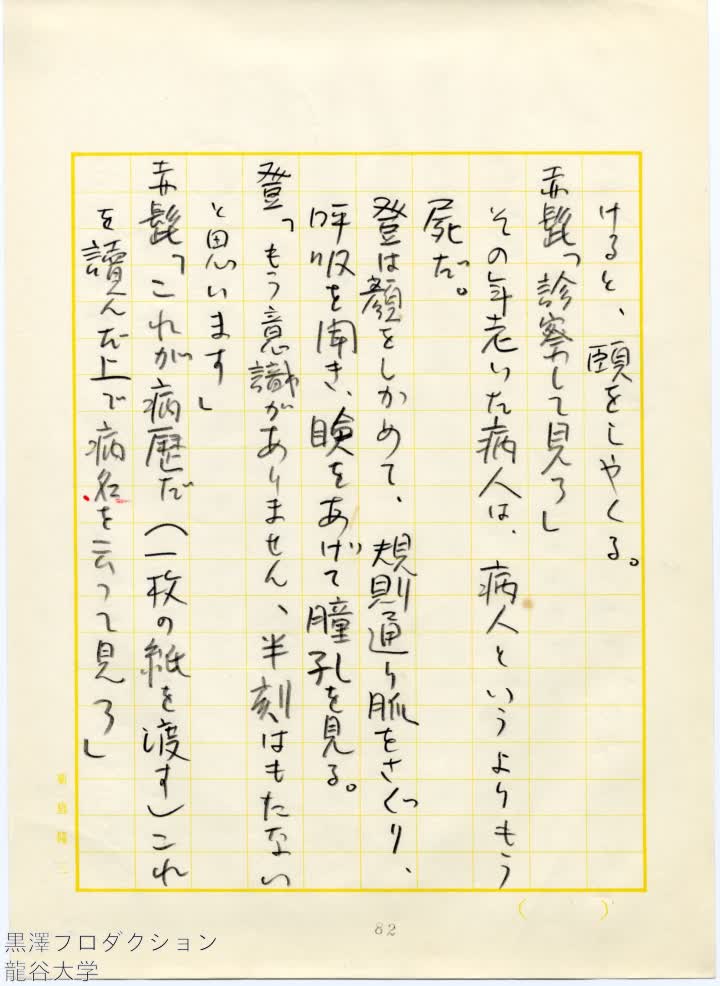 けると、頤をしやくる。
赤髭「診察して見ろ」
その年老いた病人は、病人というよりもう
屍だ。
登は顔をしかめて、規則通り脈をさぐり、
呼吸を聞き、瞼をあげて瞳孔を見る。
登「もう意識がありません、半刻はもたない
と思います」
赤髭「これが病歴だ（一枚の紙を渡す）これ
を讀んだ上で病名を云って見ろ」
菊島隆三
82
黒澤プロダクション
龍谷大学